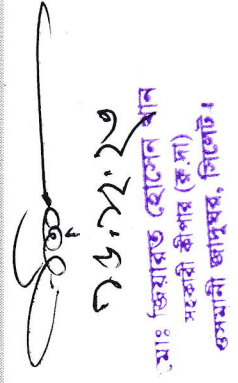 ১৮.১২.২৩
মোঃ জিয়ারত হোসেন খান
সহকারী কীপার (রু.দা)
ওসমানী জাদুঘর, সিলেট।